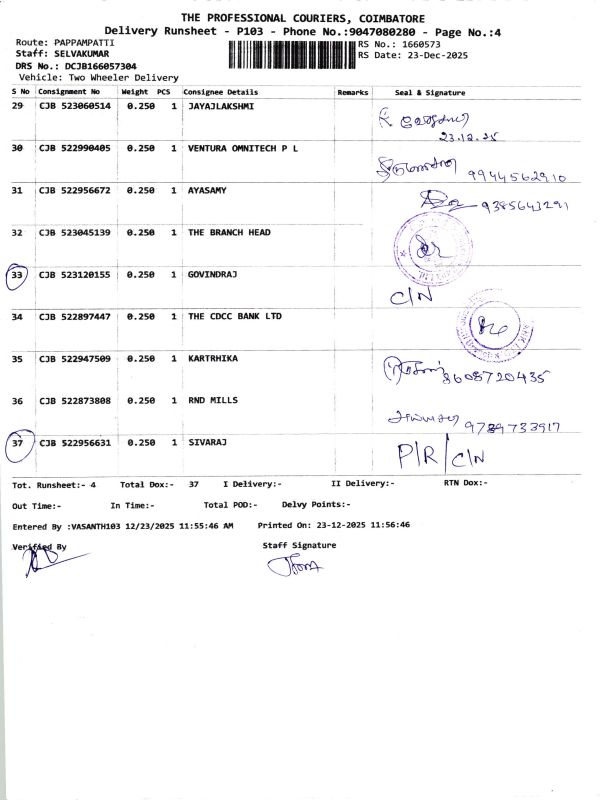 THE PROFESSIONAL COURIERS, COIMBATORE
Delivery Runsheet - P103 - Phone No.:9047080280 - Page No.:4
Route: PAPPAMPATTI
Staff: SELVAKUMAR
RS No.: 1660573
DRS No.: DCJB166057304
RS Date: 23-Dec-2025
Vehicle: Two Wheeler Delivery
S No Consignment No Weight PCS Consignee Details Remarks Seal & Signature
29 CJB 523060514 0.250 1 JAYAJLAKSHMI
23.12.25
30 CJB 522990405 0.250 1 VENTURA OMNITECH P L
9944562910
31 CJB 522956672 0.250 1 AYASAMY
9385643291
32 CJB 523045139 0.250 1 THE BRANCH HEAD
33 CJB 523120155 0.250 1 GOVINDRAJ
C/N
34 CJB 522897447 0.250 1 THE CDCC BANK LTD
35 CJB 522947509 0.250 1 KARTRHIKA
8608720435
36 CJB 522873808 0.250 1 RND MILLS
9789733917
37 CJB 522956631 0.250 1 SIVARAJ
P/R/C/N
Tot. Runsheet:- 4 Total Dox:- 37 I Delivery:- II Delivery:- RTN Dox:-
Out Time:- In Time:- Total POD:- Delvy Points:-
Entered By :VASANTH103 12/23/2025 11:55:46 AM Printed On: 23-12-2025 11:56:46
Verified By Staff Signature